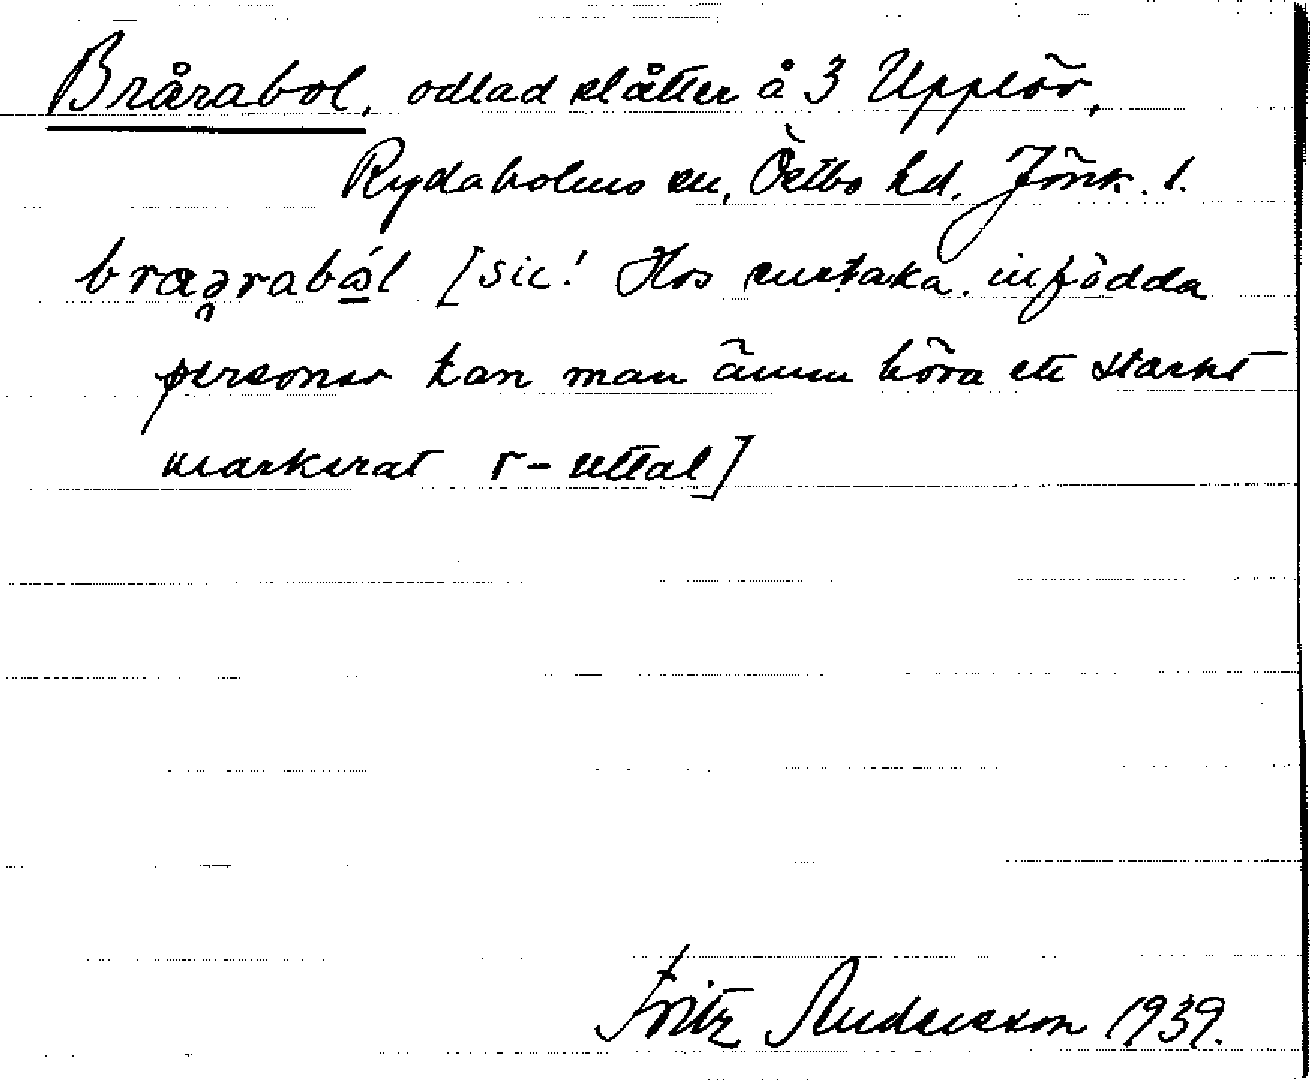 Brårabol, odlad slåtter å 3 Upplöv,
Rydaholms sn, Östbo hd. Jönk. l.
braə̯rabål [sic! Hos enstaka infödda
personer kan man ännu höra ett starkt
markerat r-uttal]
Fritz Andersson 1939.